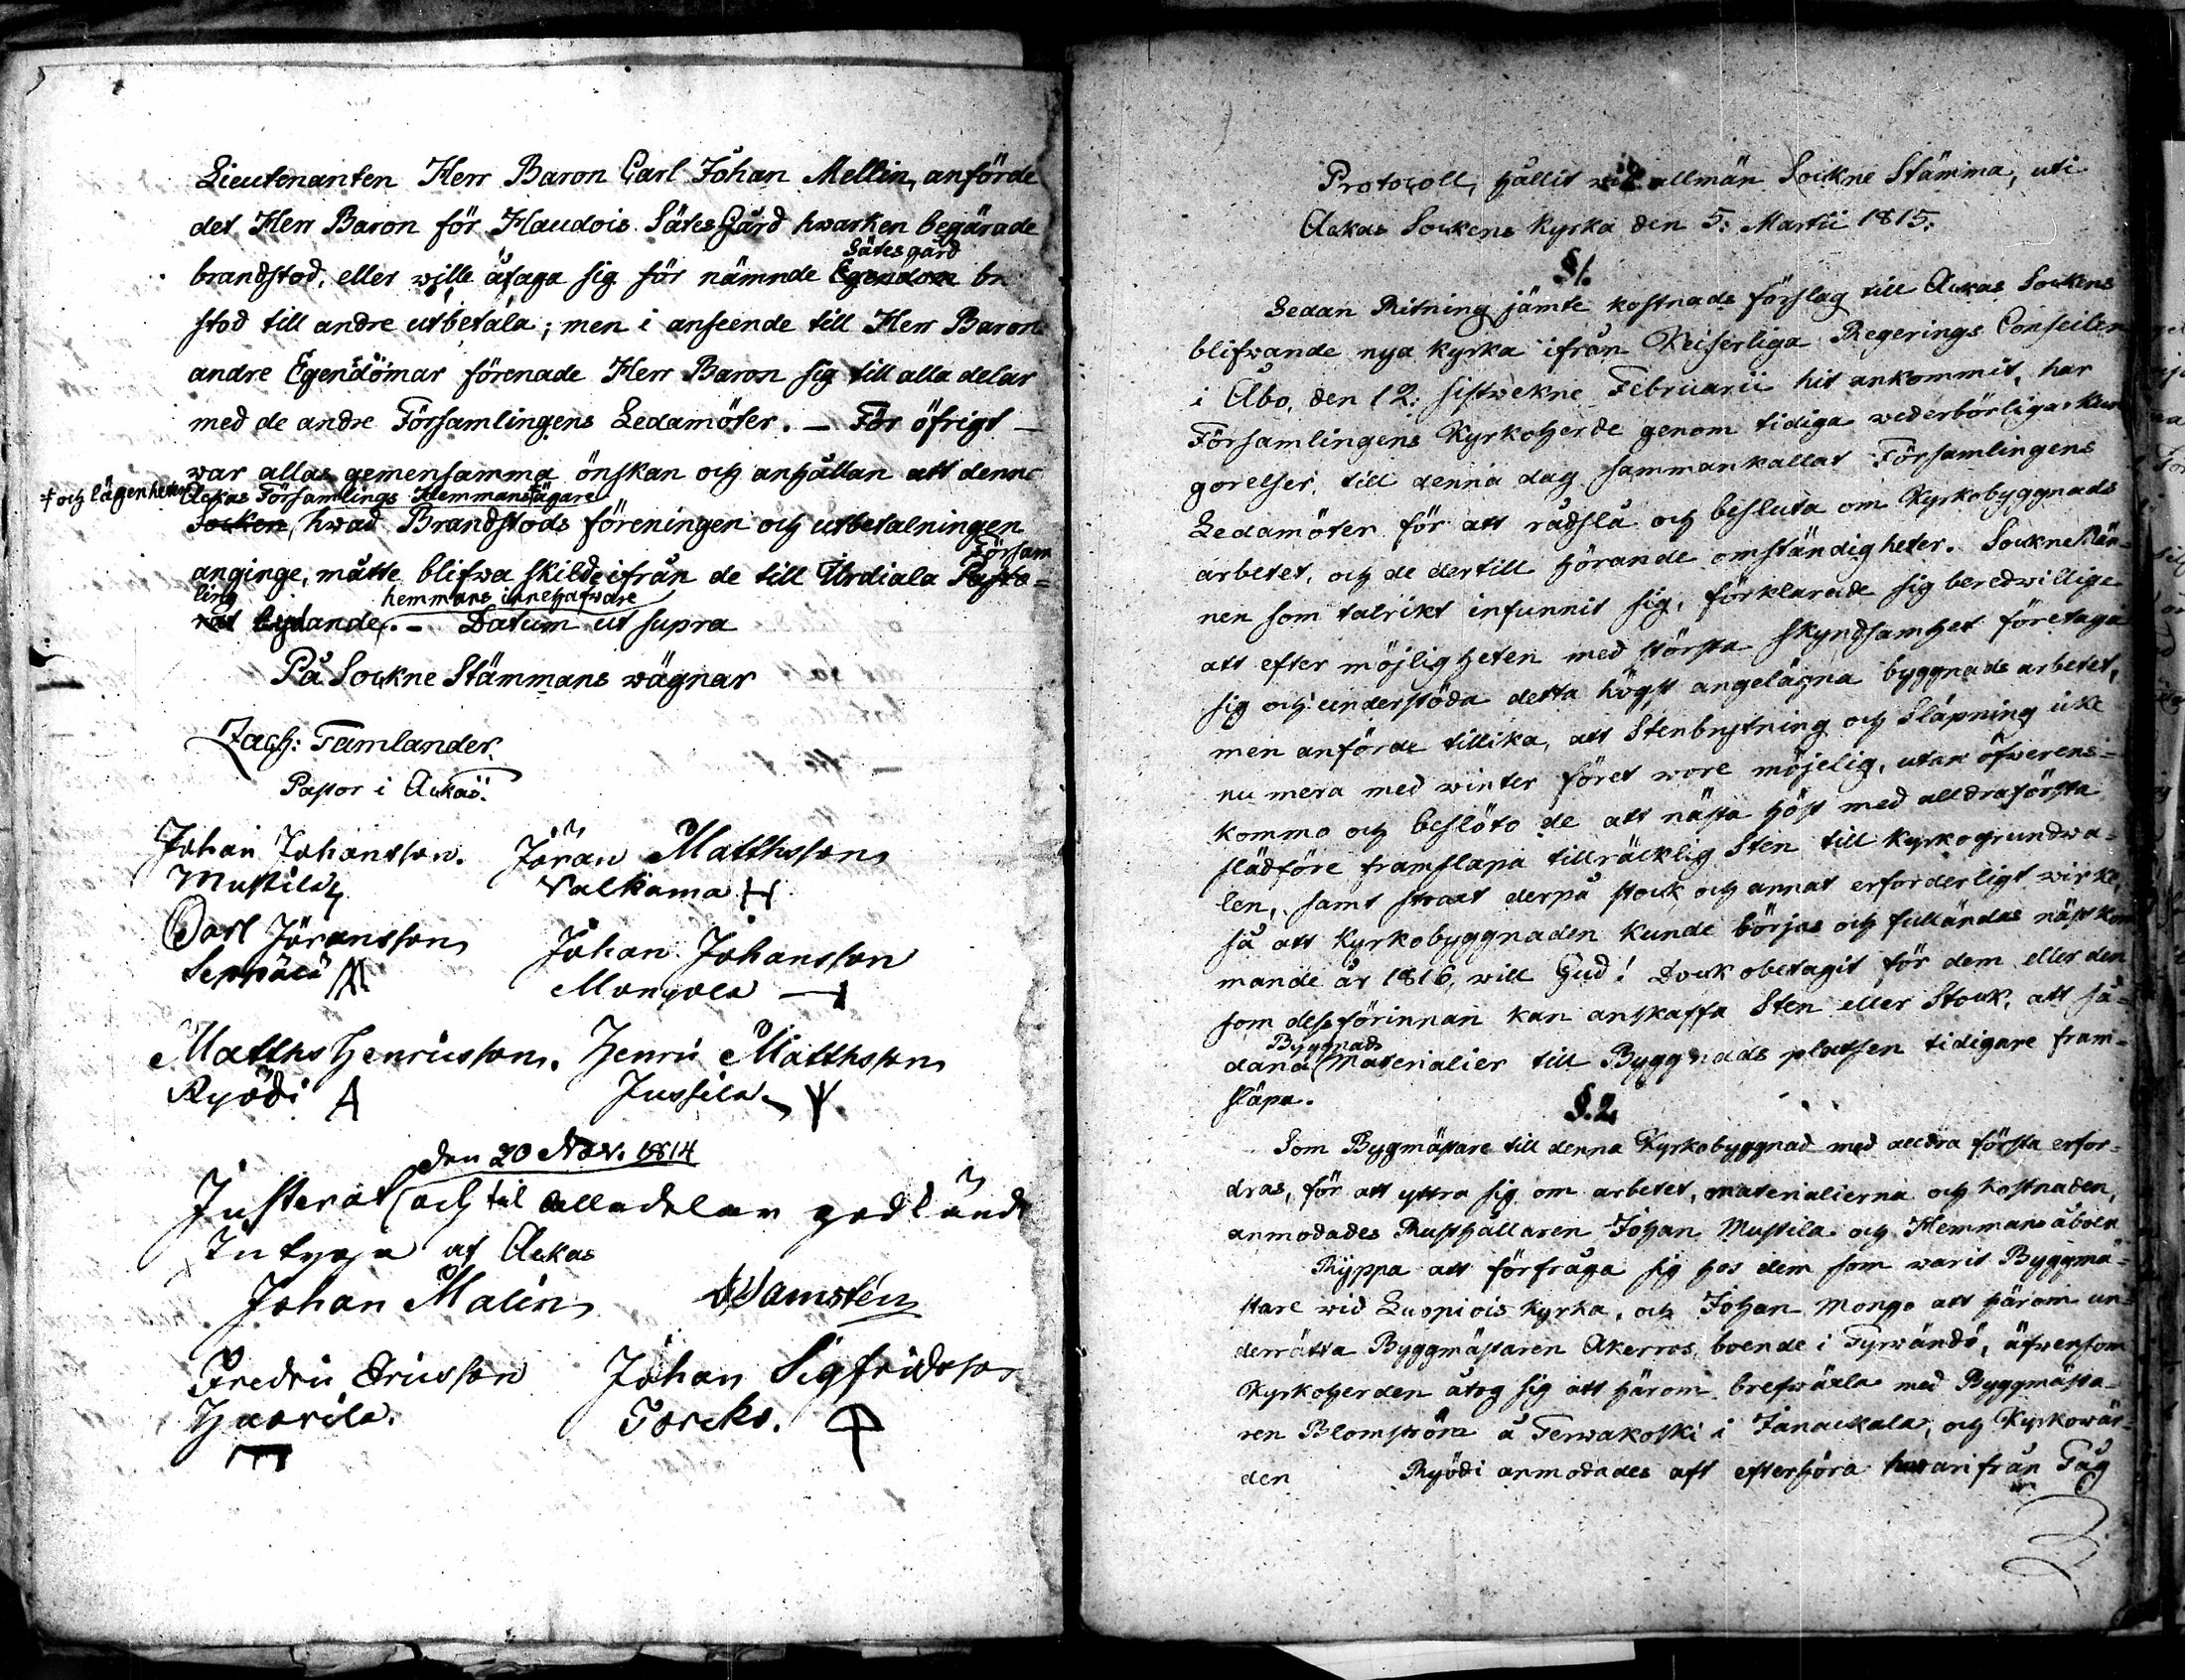 Lieutenanten Herr Baron Carl Johan Mellin, anförde
det Herr Baron för Haudois Sätes Gård hwarken begärade
Sätesgård
brandstod, eller wille åtaga sig för nämnde Egendom br
stod till andre utbetala; men i anseende till Herr Baron
andre Egendomar förenade Herr Baron sig till alla delar
med de andre Församlingens Ledamöter. – För öfrigt –
war allas gemensamma önskan och anhållan att denne
+ och lägenheter Ackas Församlings Hemmansägare
Socken hwad Brandstods föreningen och utbetalningen
Försam
anginge, måtte blifwa skilde ifrån de till Urdiala Pasto=
ling hemmans innehafware
rat lydande. – Datum ut supra
På Sockne Stämmans wägnar
Zach: Tamlander
Pastor i Ackas.
Johan Johansson. Jöran Matthsson
Mustila Valkama
Carl Jöransson Johan Johansson
Seppälä Mongola
Matths Henricsson. Henric Matthsson
Ryödi Jussila
den 20 Nov. 1814
Justerat och til alla delar godkändt
Intyga af Ackas
Johan Malin Wamstén
Fredric Ericsson Johan Sigfridsson
Haorila. Torcko.
Protocoll, hållit wid allmän Sockne Stämma, uti
Ackas Sockens Kyrka den 5: Martii 1815.
§1.
Sedan Ritning jämte kostnads förslag till Ackas Sockens
blifwande nya kyrka ifrån Keiserliga Regerings Conseilen
i Åbo, den 12: sistwekne Februarii hit ankommit, har
Församlingens Kyrkoherde genom tidiga wederbörliga kun
görelser, till denna dag sammankallat Församlingens
Ledamöter för att rådslå och besluta om Kyrkobyggnads
arbetet, och de dertill hörande omständigheter. SockneMän=
nen som talrikt infunnit sig, förklarade sig beredwillige
att efter möjligheten med största skyndsamhet företaga
sig och understöda detta högst angelägna byggnads arbetet,
men anförde tillika, att Stenbrytning och Släpning icke
nu mera med winter föret wore möjelig, utan öfwerens=
kommo och beslöto de att nästa höst med alldraförsta
slädföre framslapa tillräcklig Sten till kyrkogrundwa=
len, samt straxt derpå stock och annat erforderligt wirke,
så att Kyrkobyggnaden kunde börjas och fulländas nästkom
mande år 1816, will Gud! Dock obetagit för dem eller den
som dessförinnan kan anskaffa Sten eller Stock, att så=
Byggnads
dana Materialier till Byggnads platsen tidigare fram=
släpa.
§.2.
Som Bygmästare till denna Kyrkobyggnad med alldra första erfor=
dras, för att yttra sig om arbetet, materialierna och kostnaden,
anmodades Rusthållaren Johan Mustila och Hemmans åboen
Ryppa att förfråga sig hos dem som warit Byggmä=
stare wid Luopiois Kyrka, och Johan Mongo att härom un=
derrätta Byggmästaren Akerros, boende i Tyrwändö, äfwensom
Kyrkoherden åtog sig att härom brefwäxla med Byggmästa=
ren Blomström å Terwakoski i Janackala, och Kyrkowär=
den Ryödi anmodades att efterhöra hwarifrån Tåg